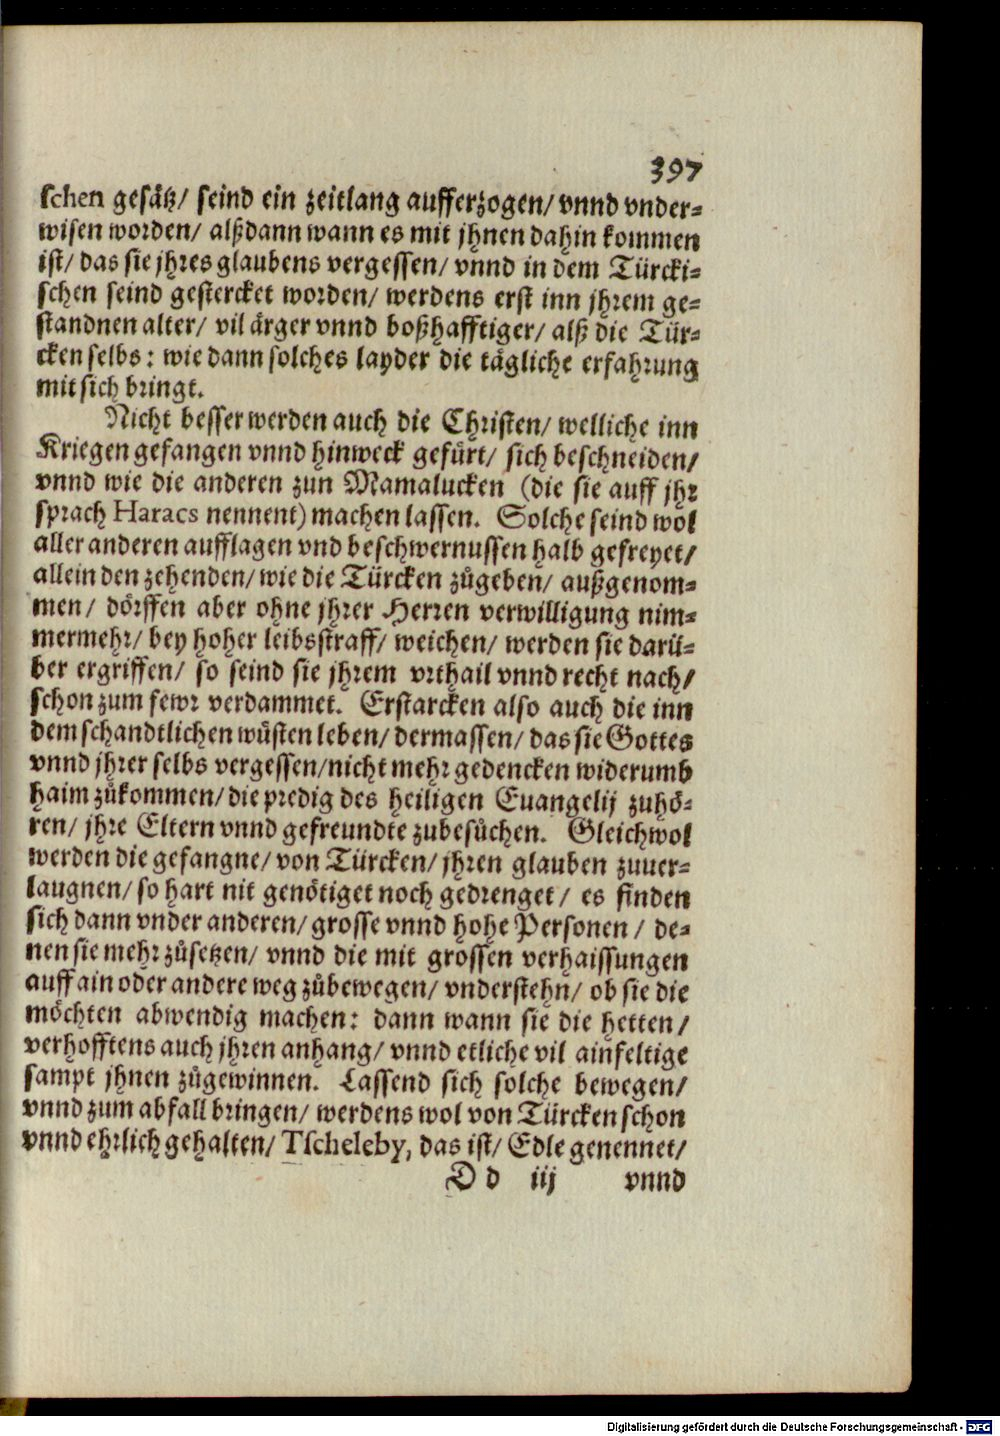 397
schen gesätz/ seind ein zeitlang aufferzogen/ vnnd vnder-
wisen worden/ alßdann wann es mit jhnen dahin kommen
ist/ das sie jhres glaubens vergessen/ vnnd in dem Türcki-
schen seind gestercket worden/ werdens erst inn jhrem ge-
standnen alter/ vil ärger vnnd boßhafftiger/ alß die Tür-
cken selbs: wie dann solches layder die tägliche erfahrung
mit sich bringt.
Nicht besser werden auch die Christen/ welliche inn
Kriegen gefangen vnnd hinweck gefürt/ sich beschneiden/
vnnd wie die anderen zun Mamalucken (die sie auff jhr
sprach Haracs nennent) machen lassen. Solche seind wol
aller anderen aufflagen vnd beschwernussen halb gefreyet/
allein den zehenden/ wie die Türcken zůgeben/ außgenom-
men/ dörffen aber ohne jhrer Herren verwilligung nim-
mermehr/ bey hoher leibsstraff/ weichen/ werden sie darü-
ber ergriffen/ so seind sie jhrem vrthail vnnd recht nach/
schon zum fewr verdammet. Erstarcken also auch die inn
dem schandtlichen wüsten leben/ dermassen/ das sie Gottes
vnnd jhrer selbs vergessen/ nicht mehr gedencken widerumb
haim zůkommen/ die predig des heiligen Euangelij zuhö-
ren/ jhre Eltern vnnd gefreundte zubesůchen. Gleichwol
werden die gefangne/ von Türcken/ jhren glauben zuuer-
laugnen/ so hart nit genötiget noch gedrenget/ es finden
sich dann vnder anderen/ grosse vnnd hohe Personen/ de-
nen sie mehr zůsetzen/ vnnd die mit grossen verhaissungen
auff ain oder andere weg zůbewegen/ vnderstehn/ ob sie die
möchten abwendig machen: dann wann sie die hetten/
verhofftens auch jhren anhang/ vnnd etliche vil ainfeltige
sampt jhnen zůgewinnen. Lassend sich solche bewegen/
vnnd zum abfall bringen/ werdens wol von Türcken schon
vnnd ehrlich gehalten/ Tscheleby, das ist/ Edle genennet/
D d iij vnnd
Digitalisierung gefördert durch die Deutsche Forschungsgemeinschaft - DFG